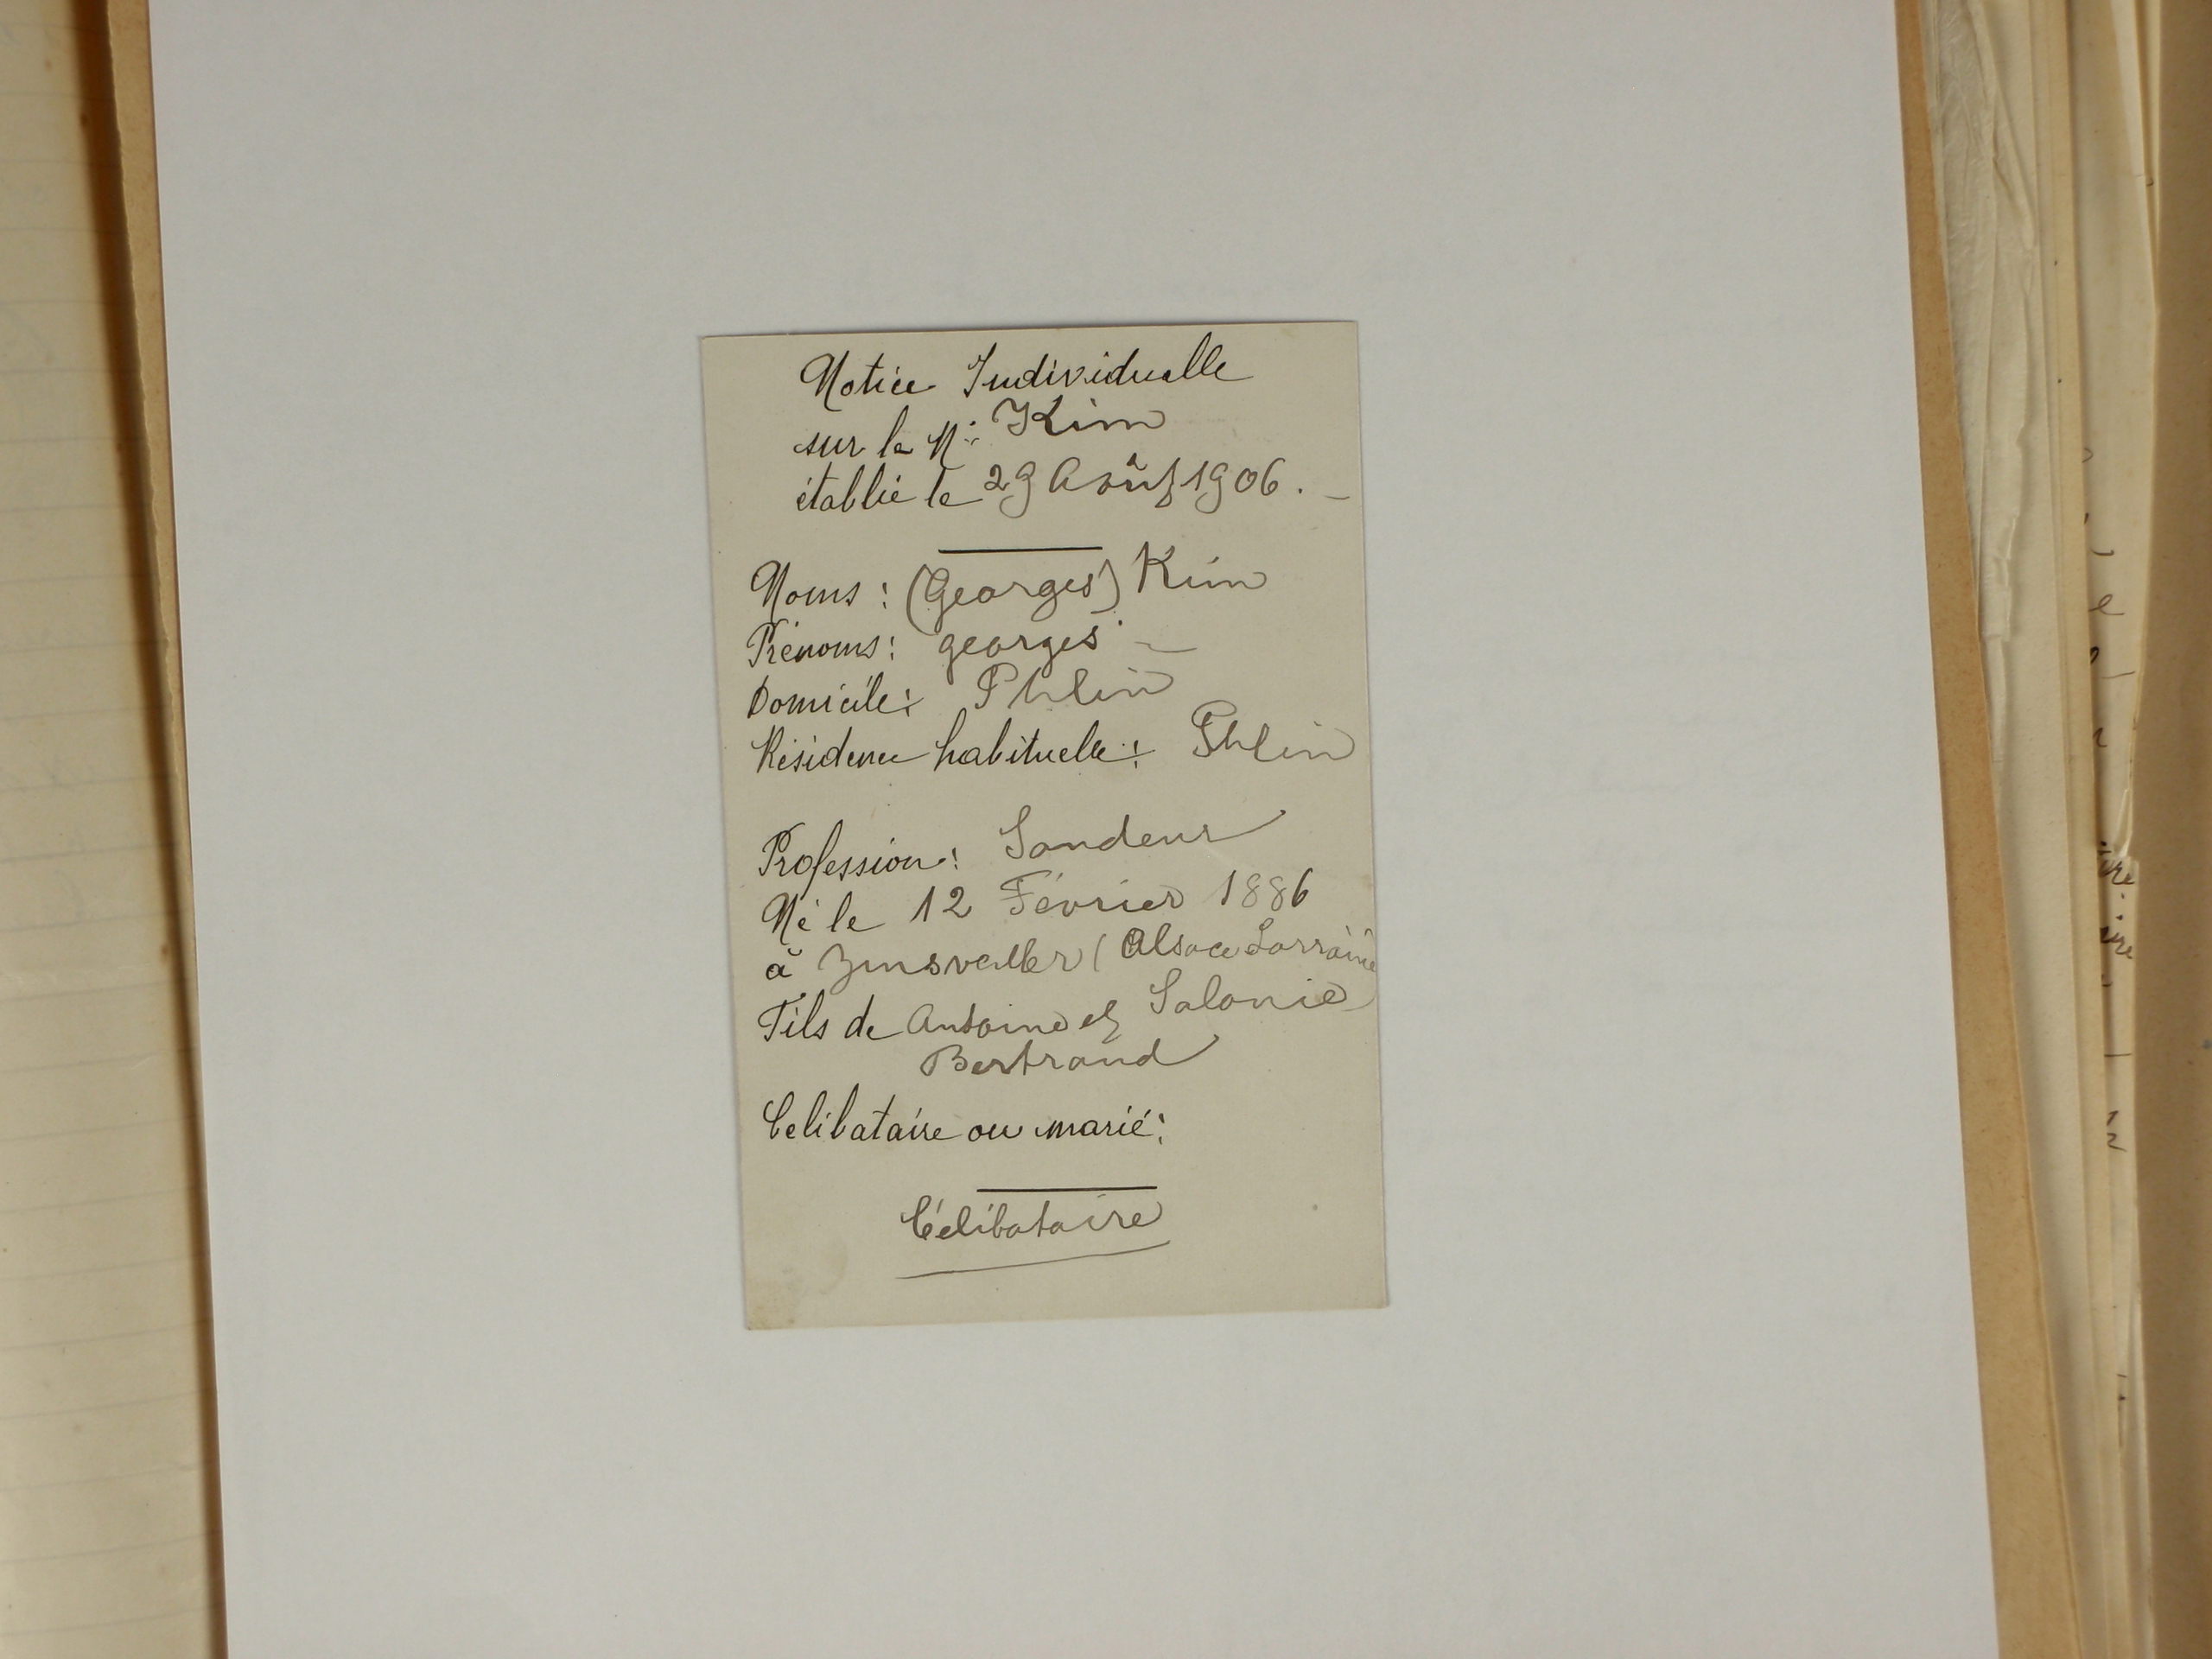 Notice Individuelle
sur le N: Kim
établie le 29 Août 1906. -
Noms: (Georges) Kim
Prénoms: georges -
Domicile: Phlin
Résidence habituelle: Phlin
Profession: Sondeur
Né le 12 Février 1886
à Zinsveiller (Alsace Lorraine
Fils de Antoine et Salonie
Bertrand
Celibataire ou marié:
Célibataire